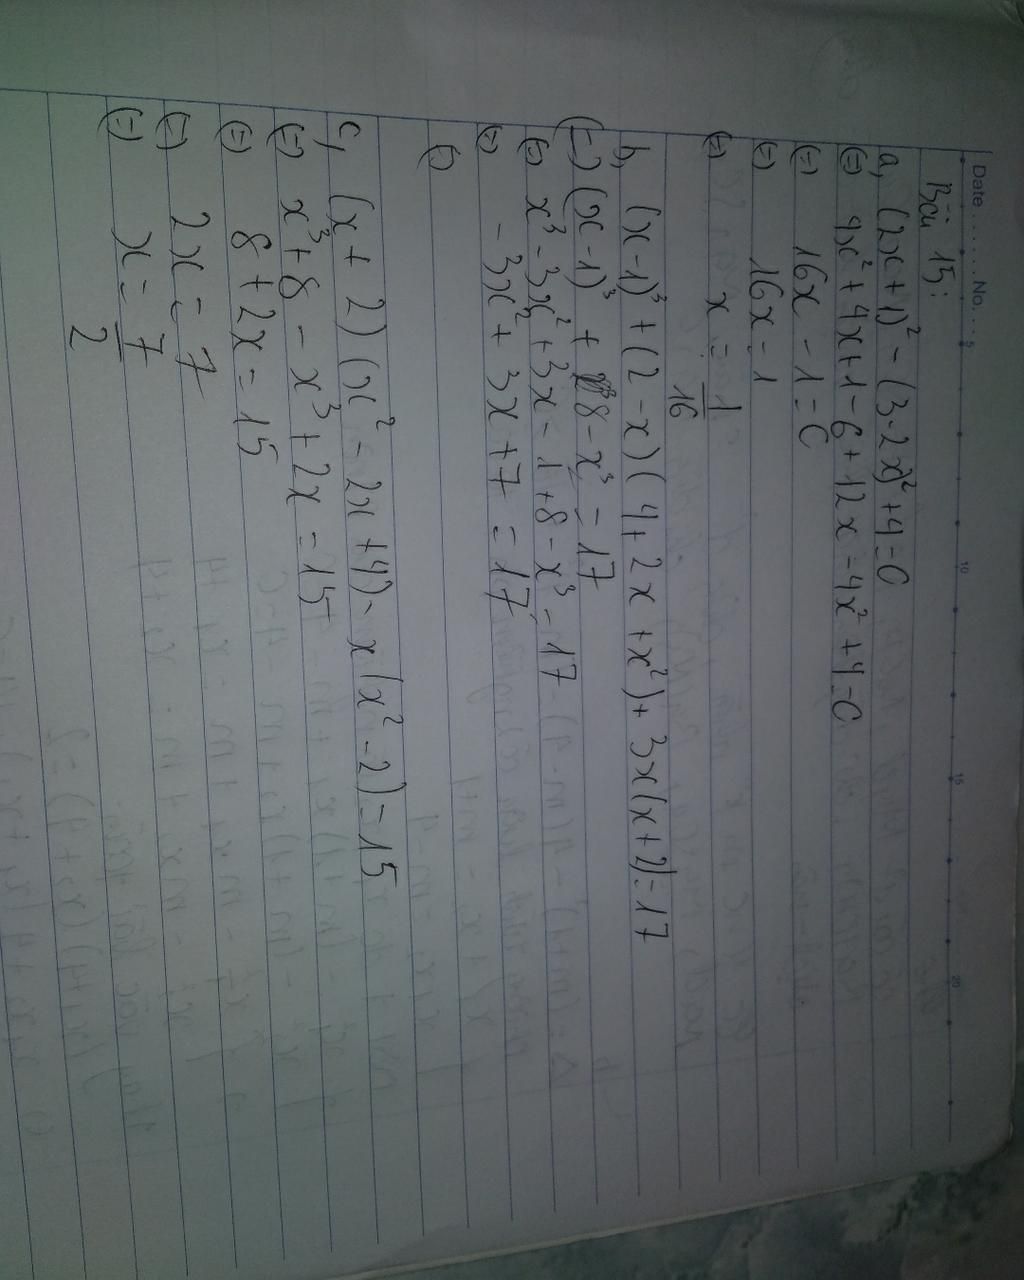 Date ........ No. ...
5 10 15 20
Bài 15:
a, (2x+1)² - (3-2x)² + 4 = 0
(=) 4x² + 4x + 1 - 6 + 12x - 4x² + 4 = 0
(=) 16x - 1 = 0
(=) 16x = 1
(=) x = 1/16
b, (x-1)³ + (2-x)(4+2x+x²) + 3x(x+2) = 17
(=) (x-1)³ + 8 - x³ = 17
(=) x³ - 3x² + 3x - 1 + 8 - x³ = 17
(=) - 3x² + 3x + 7 = 17
(=)
c, (x+2)(x² - 2x + 4) - x(x² - 2) = 15
(=) x³ + 8 - x³ + 2x = 15
(=) 8 + 2x = 15
(=) 2x = 7
(=) x = 7/2